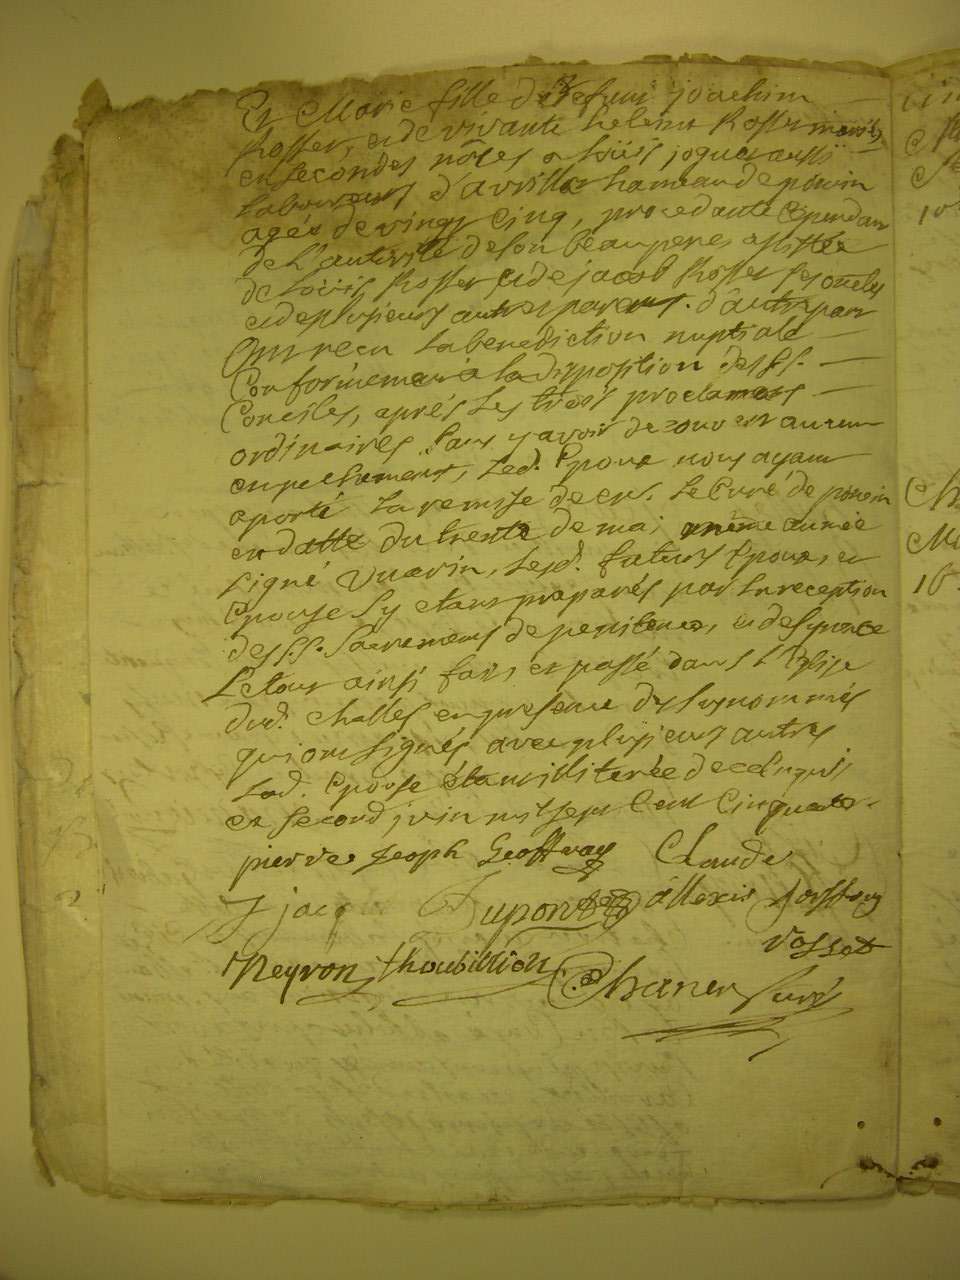 Et Marie fille de defunt joachim
Rosset, et de vivante helene Rosset mariés
en secondes nôces a Loüis joquet aussi
laboureurs d'avrillat hameau de poncin
agée de vingt cinq, procedante cependant
de l'autorité de son beau pere, assistée
de Loüis Rosset et de jacob Rosset ses oncles
et de plusieurs autres parents. d'autre part
Ont reçu la benediction nuptiale
Conformement a la disposition des SS.
Conciles, aprés les trois proclamats
ordinaires sans y avoir decouvert aucun
enpechement, led. Epoux nous ayant
aporté la remise de mr. le Curé de poncin
en datte du trente de mai même année
signé vuarin, lesd. futurs Epoux, et
Epouse s'y etant préparés par la reception
des SS. Sacrements de penitence, et de
L'etant ainsi fait et passé dans l'Eglise
dud. challes en presence des sus nommés
qui ont signés avec plusieurs autres
Lad. Epouse étant illiterée de ce enquis
ce second juin mil sept cent cinquante
pierre Joseph Geoffray Claude
j jacq Dupont allexis joeffray
rosset
Neyron thoubillion
Charier curé